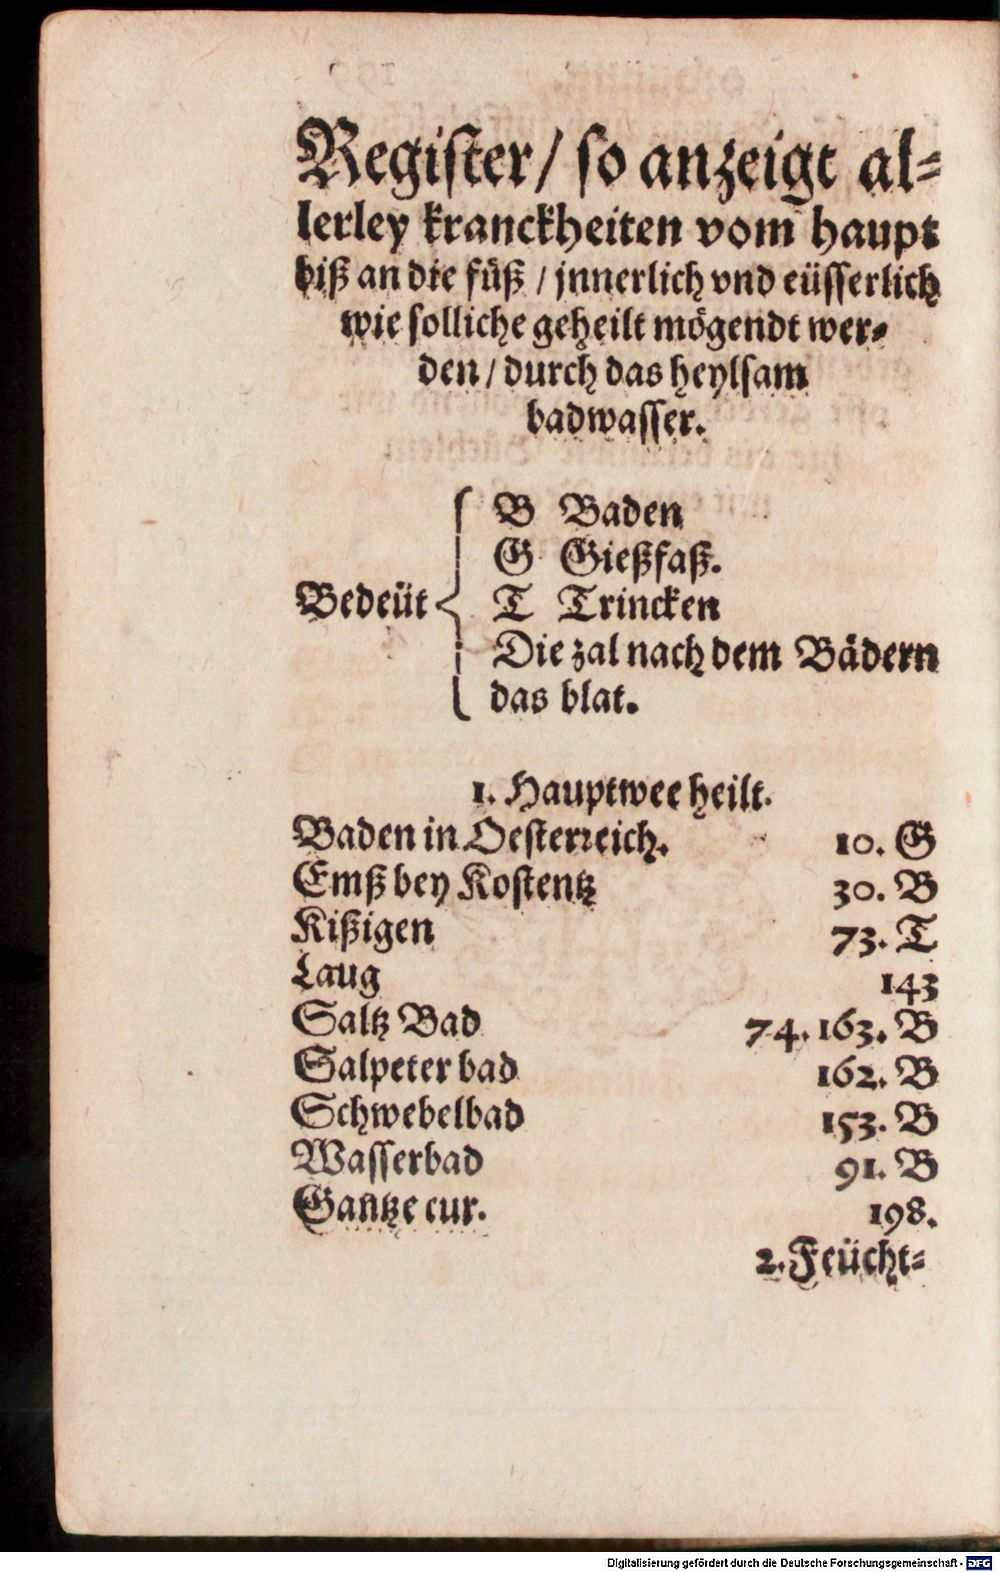 Register / so anzeigt al=
lerley kranckheiten vom haupt
biß an die füß / jnnerlich vnd eüsserlich
wie solliche geheilt mögendt wer=
den / durch das heylsam
badwasser.
B Baden
G Gießfaß.
Bedeüt
T Trincken
Die zal nach dem Bädern
das blat.
1. Hauptwee heilt.
Baden in Oesterreich. 10. G
Emß bey Kostentz 30. B
Kißigen 73. T
Laug 143
Saltz Bad 74. 163. B
Salpeter bad 162. B
Schwebelbad 153. B
Wasserbad 91. B
Gantze cur. 198.
2. Feücht=
Digitalisierung gefördert durch die Deutsche Forschungsgemeinschaft - DFG